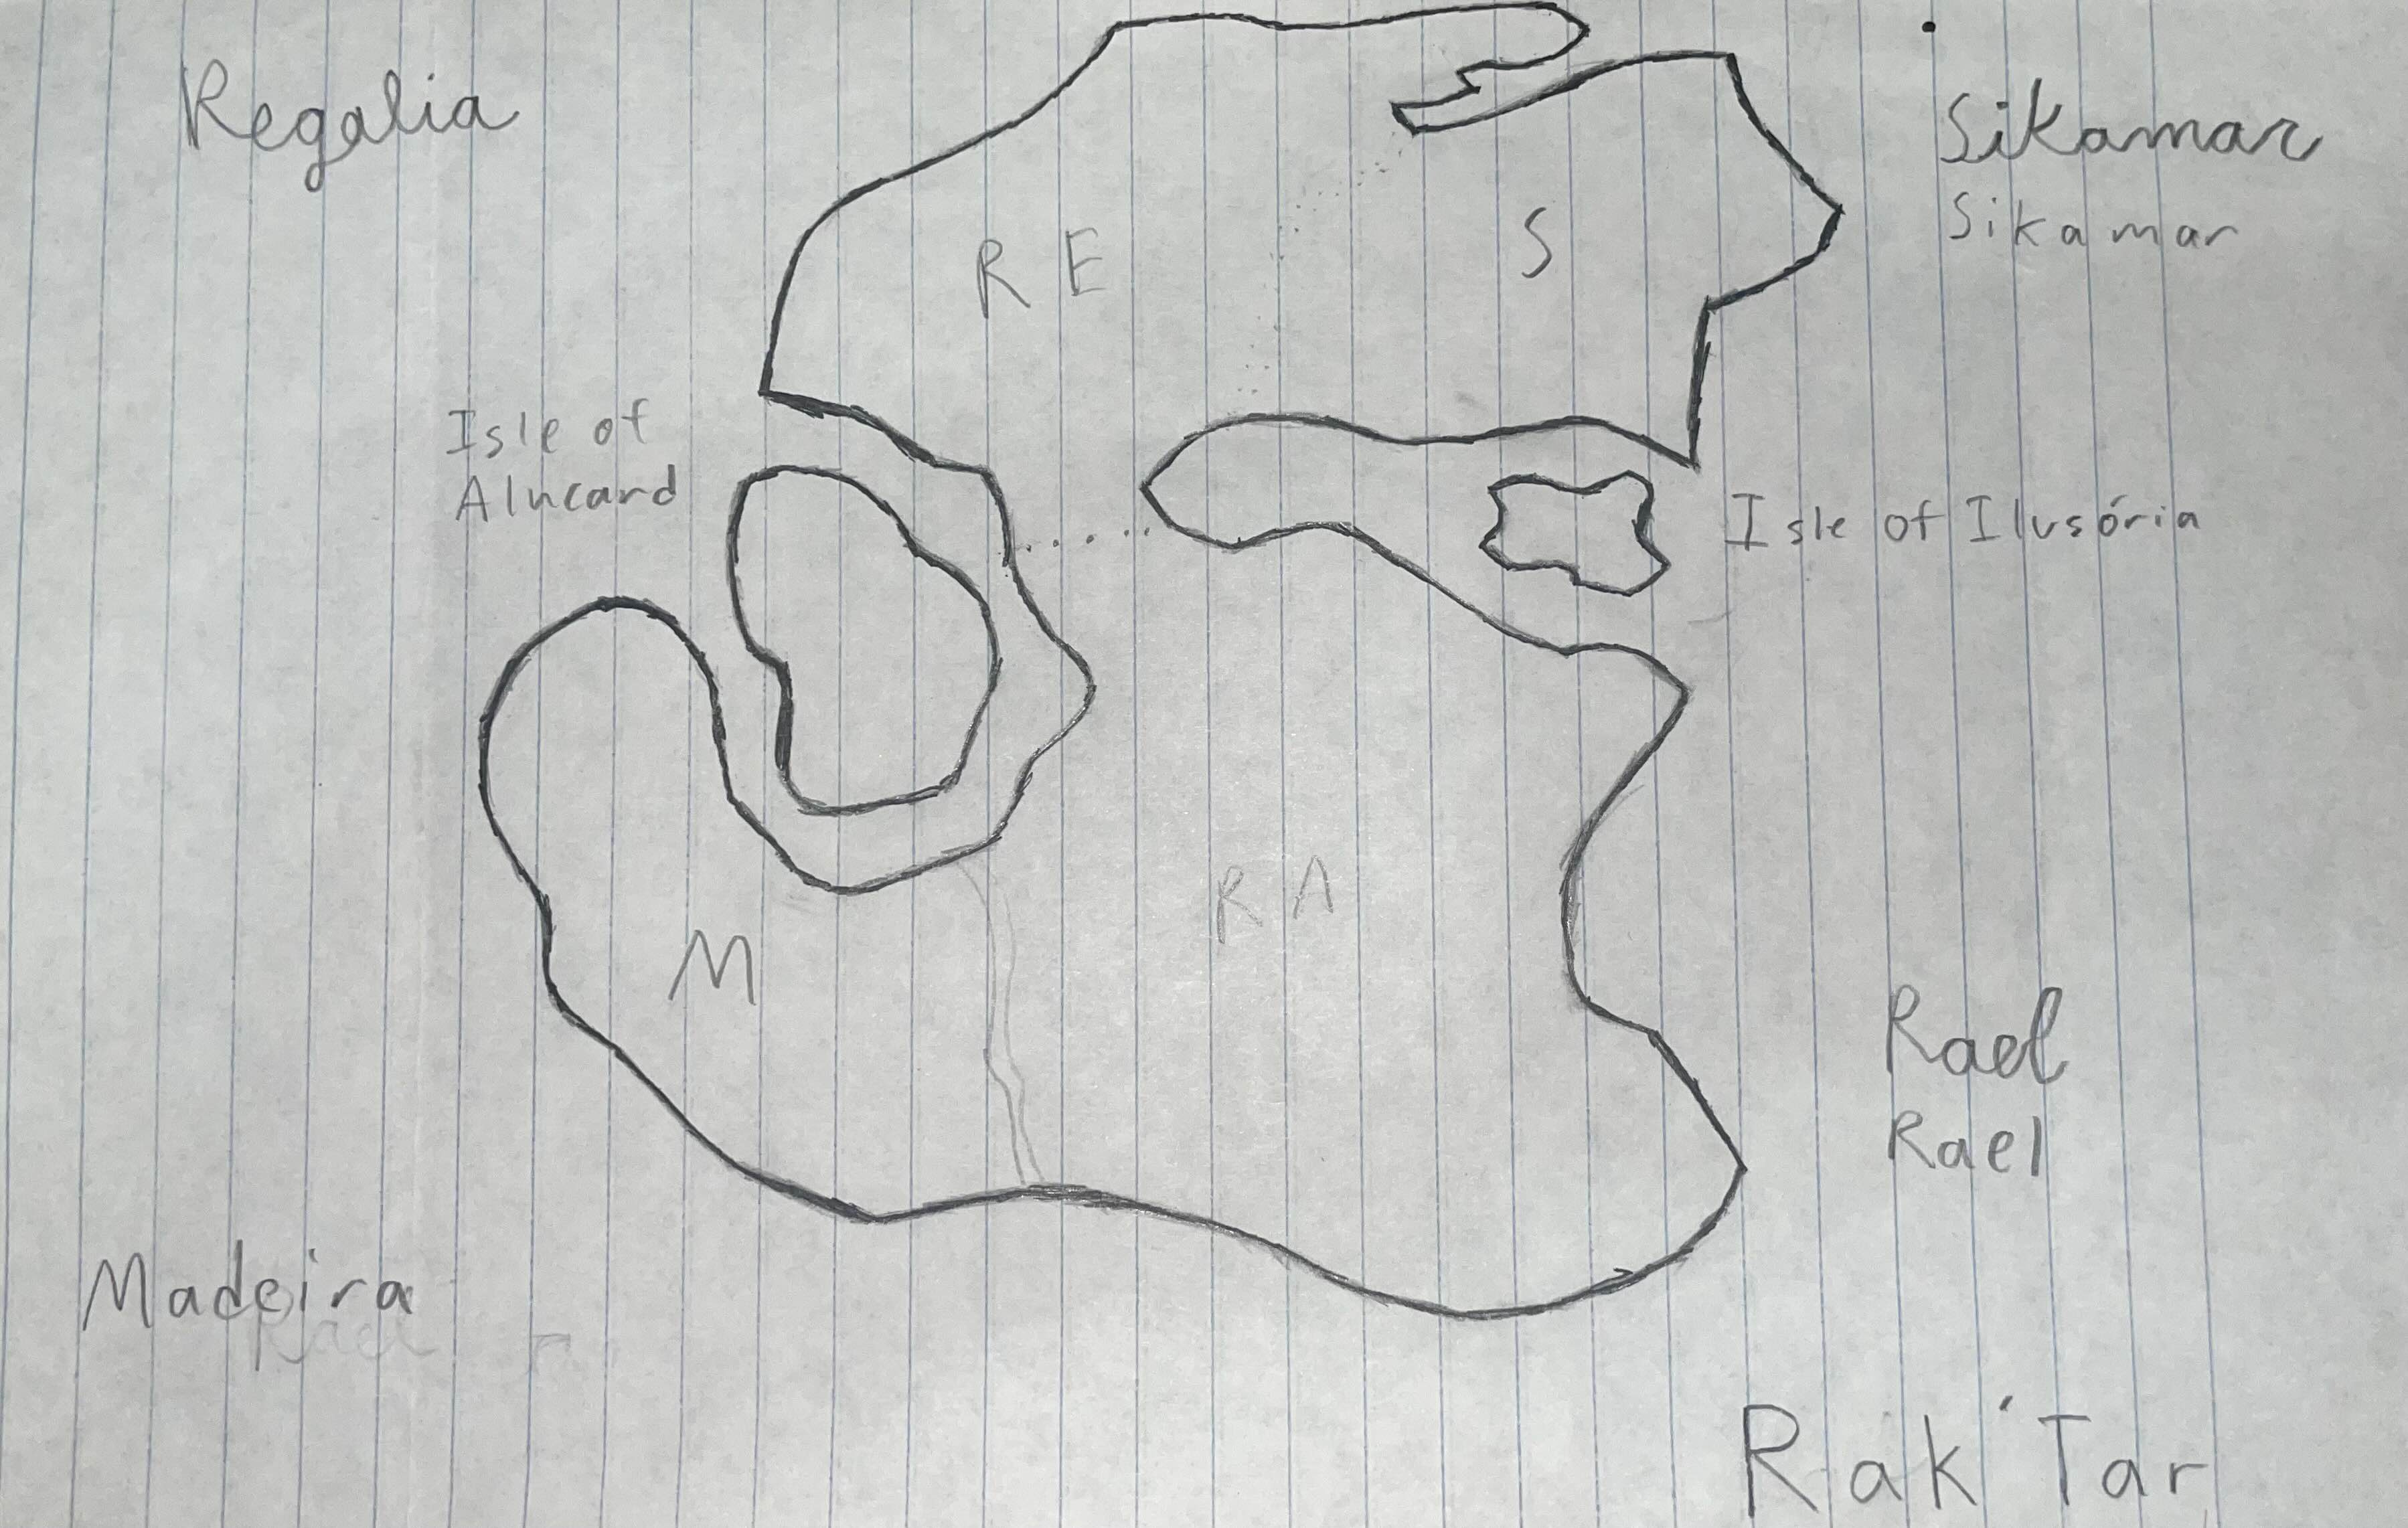 Regalia
Sikamar
Sikamar
R E
S
Isle of
Alucard
Isle of Ilusória
R A
M
Rael
Rael
Madeira
Rak'Tar